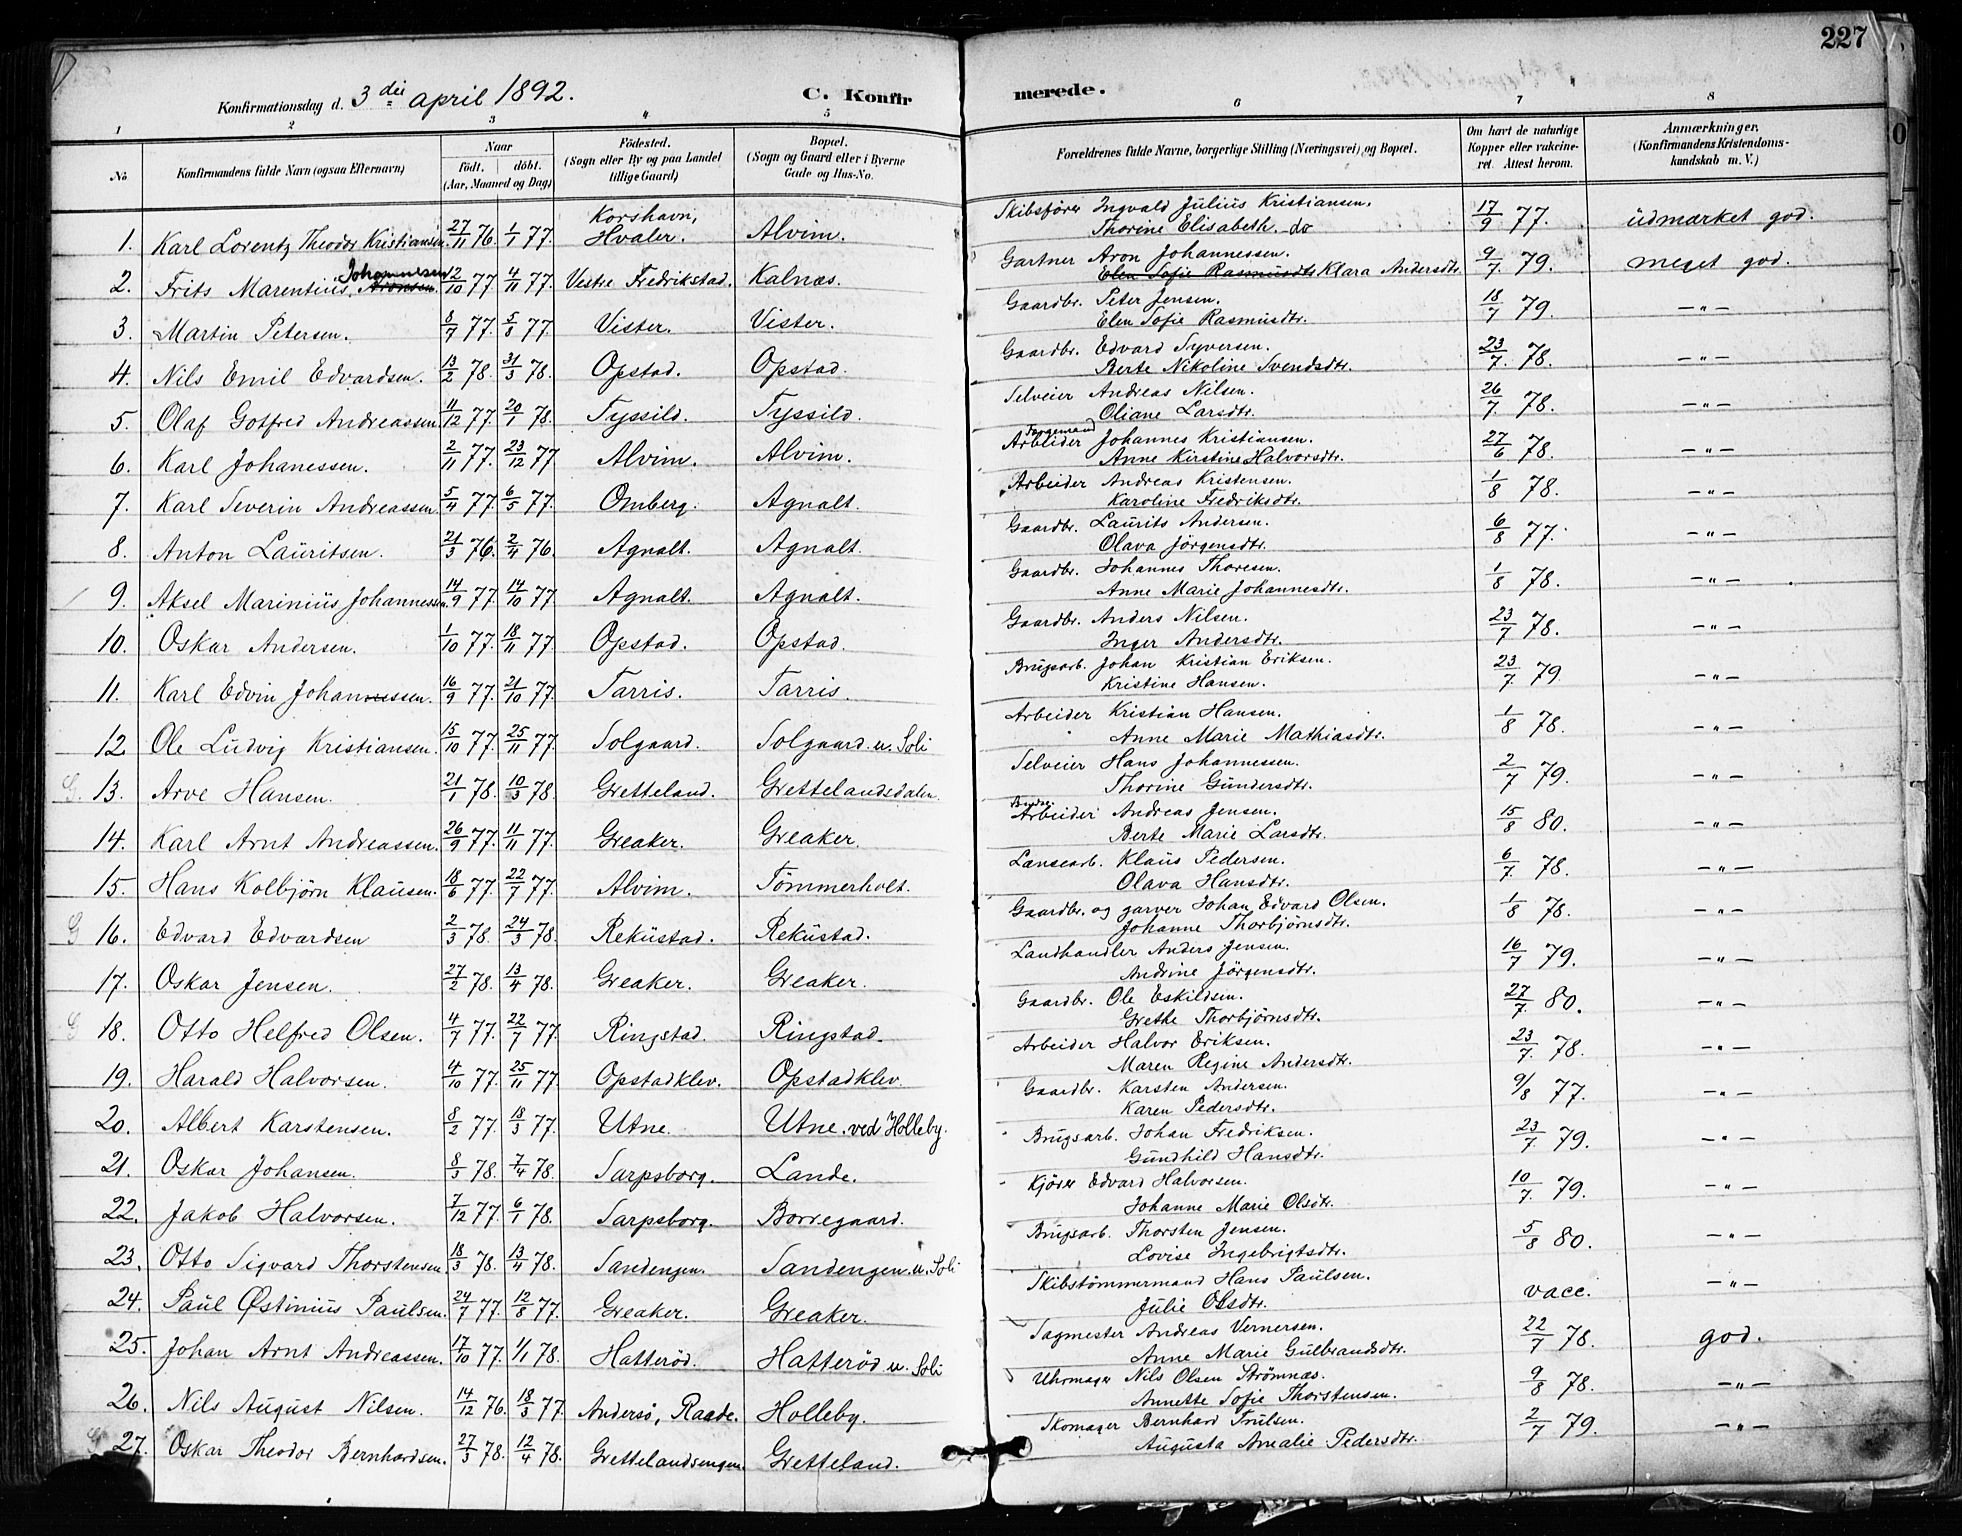 227
Konfirmationsdag d. 3die april 1892. C. Konfirmerede.
1 2 3 4 5 6 7 8
No Konfirmandens fulde Navn (ogsaa Efternavn) Naar født. døbt. (Aar, Maaned og Dag) Fødested. (Sogn eller By og paa Landet tillige Gaard) Bopæl. (Sogn og Gaard eller i Byerne Gade og Hus-No. Forældrenes fulde Navne, borgerlige Stilling (Næringsvei) og Bopæl. Om havt de naturlige Kopper eller vakcineret. Attest herom. Anmærkninger. (Konfirmandens Kristendomskundskab m. V.)
1. Karl Lorentz Theodor Kristiansen. 27/11 76. 1/1 77. Korshavn, Hvaler. Alvim. Skibsfører Ingvald Julius Kristiansen. Thorine Elisabeth do 17/9 77. üdmærket god.
2. Frits Marentius Aronsen. Johannesen 12/10 77. 4/11 77. Vestre Fredrikstad. Kalnæs. Gartner Aron Johannessen. Elen Sofie Rasmusdtr Klara Andersdtr. 9/7 79. meget god.
3. Martin Petersen. 8/7 77. 5/8 77. Vister. Vister. Gaardbr. Peter Jensen. Elen Sofie Rasmusdtr. 18/7 79. -"-
4. Nils Emil Edvardsen. 13/2 78. 31/3 78. Opstad. Opstad. Gaardbr. Edvard Syversen. Berte Nikoline Svendsdtr. 23/7 78. -"-
5. Olaf Gotfred Andreassen 11/12 77. 20/1 78. Tyssild. Tyssild. Selveier Andreas Nilsen. Oliane Larsdtr. 26/7 78. -"-
6. Karl Johanessen. 2/11 77. 23/12 77 Alvim. Alvim. Arbeider Formand Johannes Kristiansen. Anne Kirstine Halvorsdtr. 27/6 78. -"-
7. Karl Severin Andreassen 5/4 77. 6/5 77. Omberg. Agnalt. Arbeider Andreas Kristensen. Karoline Fredriksdtr. 1/8 78. -"-
8. Anton Lauritsen. 21/3 76. 2/4 76. Agnalt. Agnalt. Gaardbr. Laurits Andersen. Olava Jörgensdtr. 6/8 77. -"-
9. Aksel Marinius Johannessen. 14/9 77. 14/10 77. Agnalt. Agnalt. Gaardbr. Johannes Thoresen. Anne Marie Johannesdtr. 1/8 78. -"-
10. Oskar Andersen. 1/10 77. 18/11 77. Opstad. Opstad. Gaardbr. Anders Nilsen. Inger Andersdtr. 23/7 78. -"-
11. Karl Edvin Johannessen. 16/9 77. 21/10 77. Tarris. Tarris. Brugsarb. Johan Kristian Eriksen. Kristine Hansen. 23/7 79. -"-
12 Ole Ludvig Kristiansen. 15/10 77. 25/11 77. Solgaard. Solgaard u. Soli Arbeider Kristian Hansen. Anne Marie Mathiasdtr. 1/8 78. -"-
G. 13. Arve Hansen. 21/1 78. 10/3 78. Gretteland. Grettelandsdalen. Selveier Hans Johannessen. Thorine Gundersdtr. 2/7 79. -"-
14. Karl Arnt Andreassen. 26/9 77. 11/11 77. Greaker. Greaker. Arbeider Andreas Jensen. Berte Marie Larsdtr. 15/8 80. -"-
15. Hans Kolbjørn Klausen. 18/6 77. 22/7 77. Alvim. Tömmerholt. Lænsearb. Klaus Pedersen. Olava Hansdtr. 6/7 78. -"-
G 16. Edvard Edvardsen 2/3 78. 24/3 78. Rekustad. Rekustad. Gaardbr. og garver Johan Edvard Olsen. Johanne Thorbjörnsdtr. 1/8 78. -"-
17. Oskar Jensen. 27/2 78. 13/4 78. Greaker. Greaker. Landhandler Anders Jensen. Andrine Jörgensdtr. 16/7 79. -"-
G 18. Otto Helfred Olsen. 4/7 77. 22/7 77. Ringstad. Ringstad. Gaardbr. Ole Eskildsen. Grethe Thorbjörnsdtr. 27/7 80. -"-
19. Harald Halvorsen. 4/10 77. 25/11 77. Opstadklev. Opstadklev. Arbeider Halvor Eriksen. Maren Regine Andersdtr. 23/7 78. -"-
20. Albert Karstensen. 8/2 77. 18/3 77. Utne. Utne. ved Holleby. Gaardbr. Karsten Andersen. Karen Pedersdtr. 9/8 77. -"-
21. Oskar Johansen. 8/3 78. 7/4 78. Sarpsborg. Lande. Brugsarb. Johan Fredriksen. Gundhild Hansdtr. 23/7 79. -"-
22. Jakob Halvorsen. 7/12 77. 6/1 78. Sarpsborg. Borregaard. Kjörer Edvard Halvorsen. Johanne Marie Olsdtr. 10/7 79. -"-
23. Otto Sigvard Thorstensen 18/3 78. 13/4 78. Sandengen. Sandengen. u. Soli Brugsarb. Thorsten Jensen. Lovise Ingebrigtsdtr. 5/8 80. -"-
24. Paul Østinius Paulsen. 24/7 77. 12/8 77. Greaker. Greaker. Skibstömmermand Hans Paulsen. Julie Olsdtr. vacc. -"-
25. Johan Arnt Andreassen. 17/10 77. 1/1 78. Hatteröd. Hatteröd u. Soli Sagmester Andreas Vernersen. Anne Marie Gulbrandsdtr. 22/7 78. god.
26. Nils August Nilsen. 14/12 76. 18/3 77. Andersö, Raade. Holleby. Uhrmager Nils Olsen Strömnæs. Annette Sofie Thorstensen. 9/8 78. -"-
G 27. Oskar Theodor Bernhardsen. 27/3 78. 12/4 78. Grettelandsengen. Gretteland. Skomager Bernhard Trulsen. Augusta Amalie Pedersdtr. 2/7 79. -"-